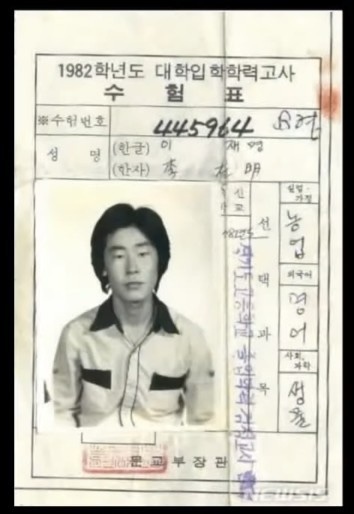 1982학년도 대학입학학력고사
수험표
※수험번호 445964
성명 (한글) 이재명
(한자) 李在明
선택과목
실업·가정
농업
외국어
영어
사회,과학
생물
문교부장관
NEWSIS